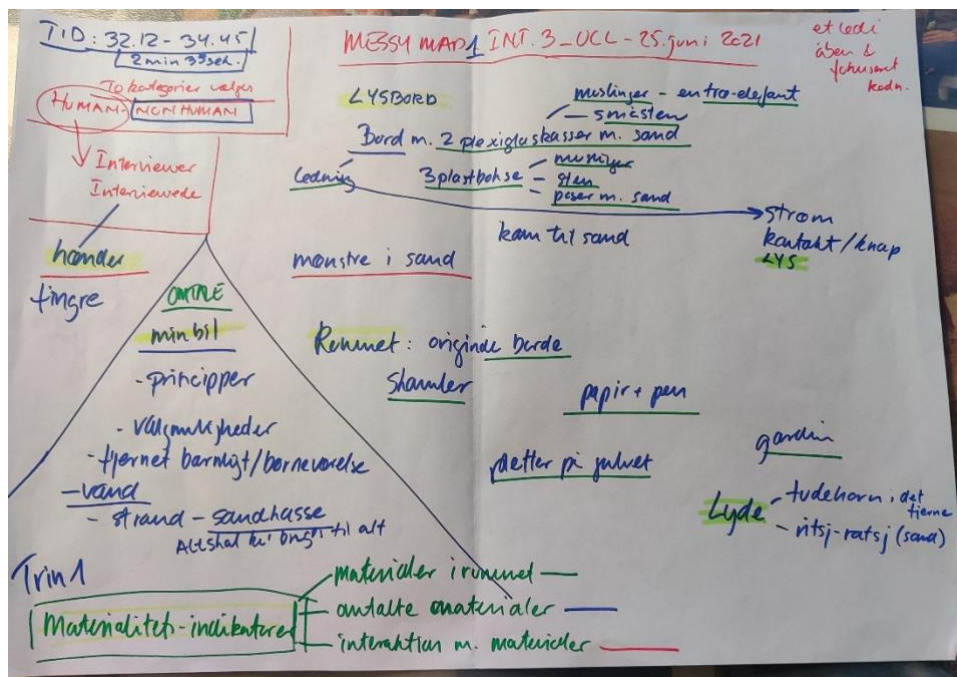 TID: 32.12 - 34.45
2 min 33 sek.
To kategorier vælges
HUMAN - NONHUMAN
Interviewer
Interviewede
hænder
fingre
MESSY MAP 1 INT. 3_UCL - 25. juni 2021
et led i
åben &
fokuseret
kodn.
LYSBORD
muslinger - en træ-elefant
småsten
Bord m. 2 plexiglaskasser m. sand
Ledning
3 plastbokse - muslinger
- sten
- poser m. sand
strøm
kontakt/knap
LYS
kam til sand
mønstre i sand
OMTALE
min bil
- principper
- valgmuligheder
- fjernet barnligt/børneværelse
- vand
- strand - sandkasse
Alt skal til alt
Rummet: borde
Skamler
papir + pen
gardin
pletter på gulvet
Lyde - tudehorn i det fjerne
- ritsj-ratsj (sand)
Trin 1
Materialitets-indikatorer
- materialer i rummet
- omtalte materialer
- interaktion m. materialer